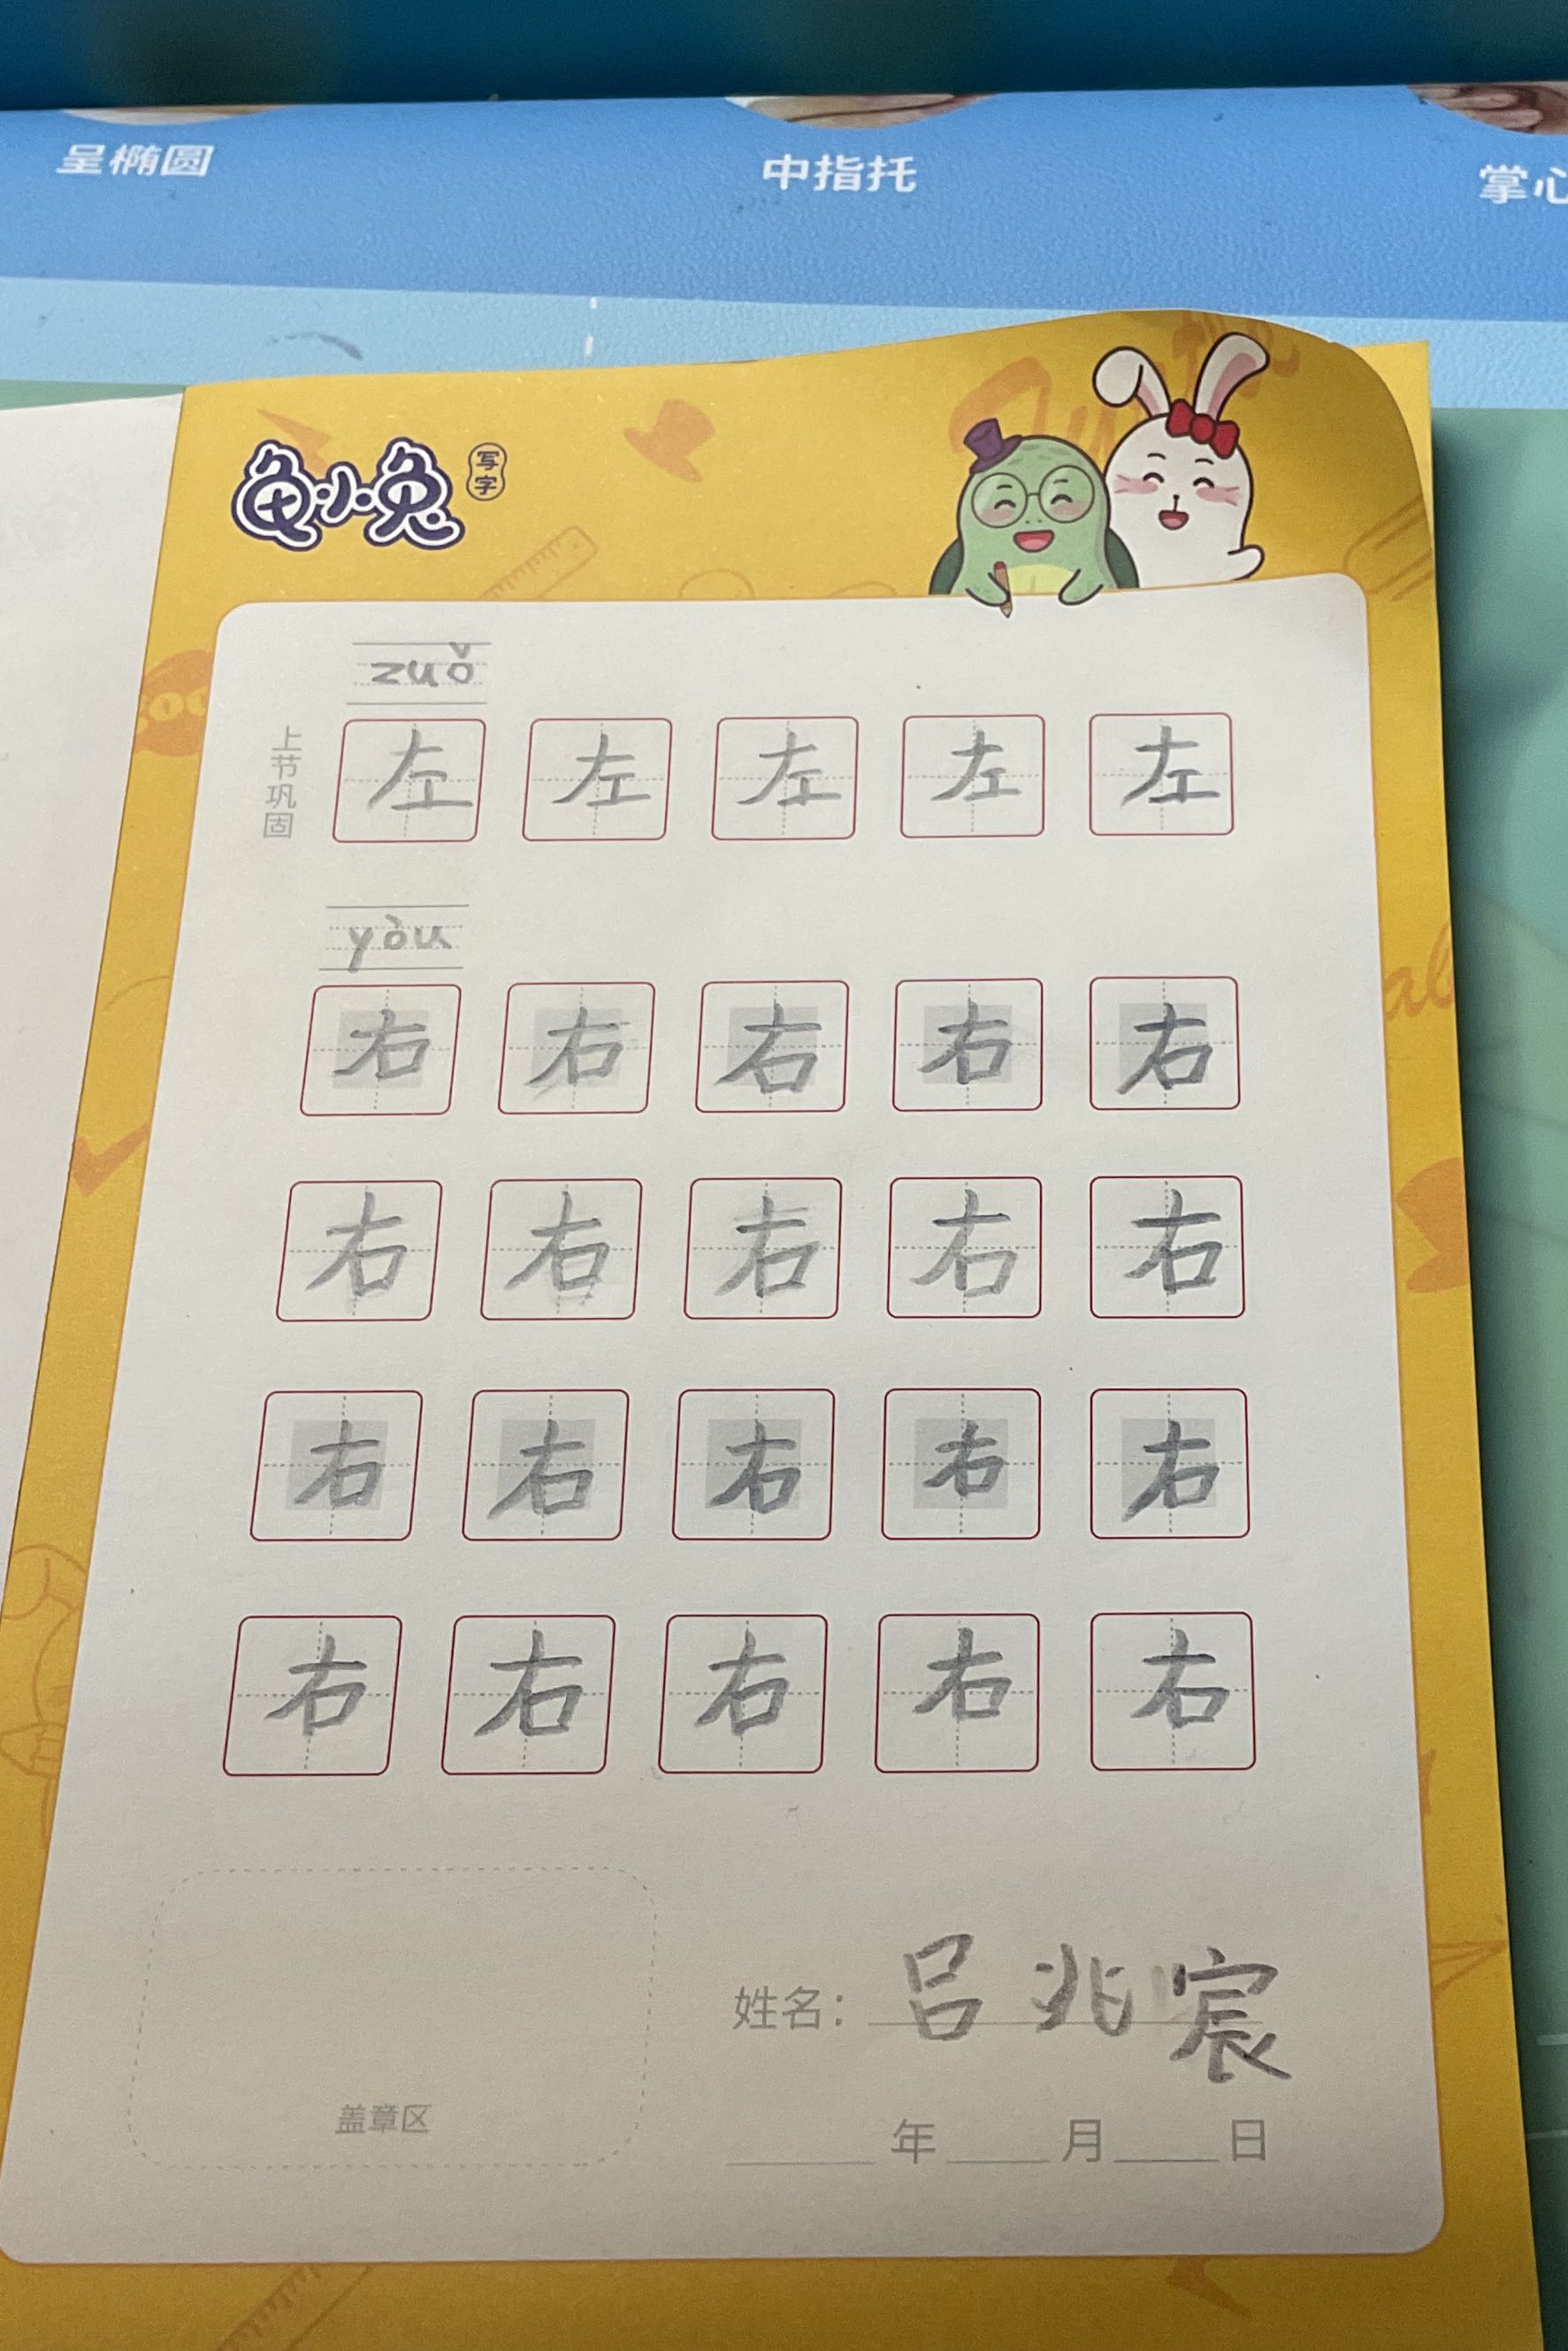 呈椭圆 中指托 掌心
龟小兔 写字
zuǒ
上节巩固
左 左 左 左 左
yòu
右 右 右 右 右
右 右 右 右 右
右 右 右 右 右
右 右 右 右 右
姓名: 吕兆宸
盖章区
年 月 日